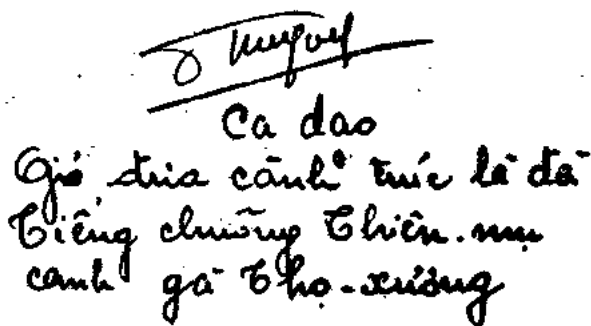 Ca dao
Gió đưa cành trúc la đà
Tiếng chuông Thiên-mụ
canh gà Thọ-xương